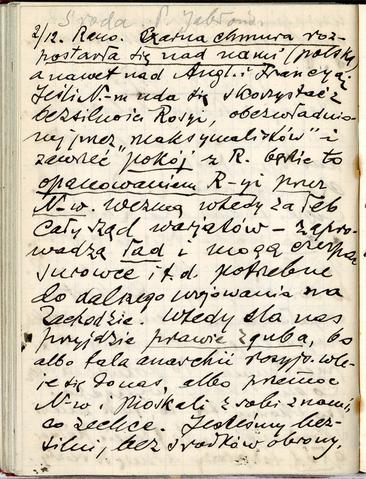 Środa. P. Jabłońs.
2/12. Reno. Czarna chmura roz-
postarła się nad nami (Polską
a nawet nad Angl. i Francyą.
Jeśli N-m uda się skorzystać z
bezsilności Rosyi, obezwładnio-
nej przez „maksymalistów" i
zawrzeć „pokój" z R. będzie to
opanowaniem R-yi przez
N-w. Wezmą wtedy za łeb
cały rząd warjatów – zapro-
wadzą ład i mogą czerpać
surowce i t.d. potrzebne
do dalszego wojowania na
Zachodzie. Wtedy dla nas
przyjdzie prawie zguba, bo
albo fala anarchii rosyjs. wle-
je się do nas, albo przemoc
N-w i Moskali zrobi z nami,
co zechce. Jesteśmy bez-
silni, bez środków obrony.